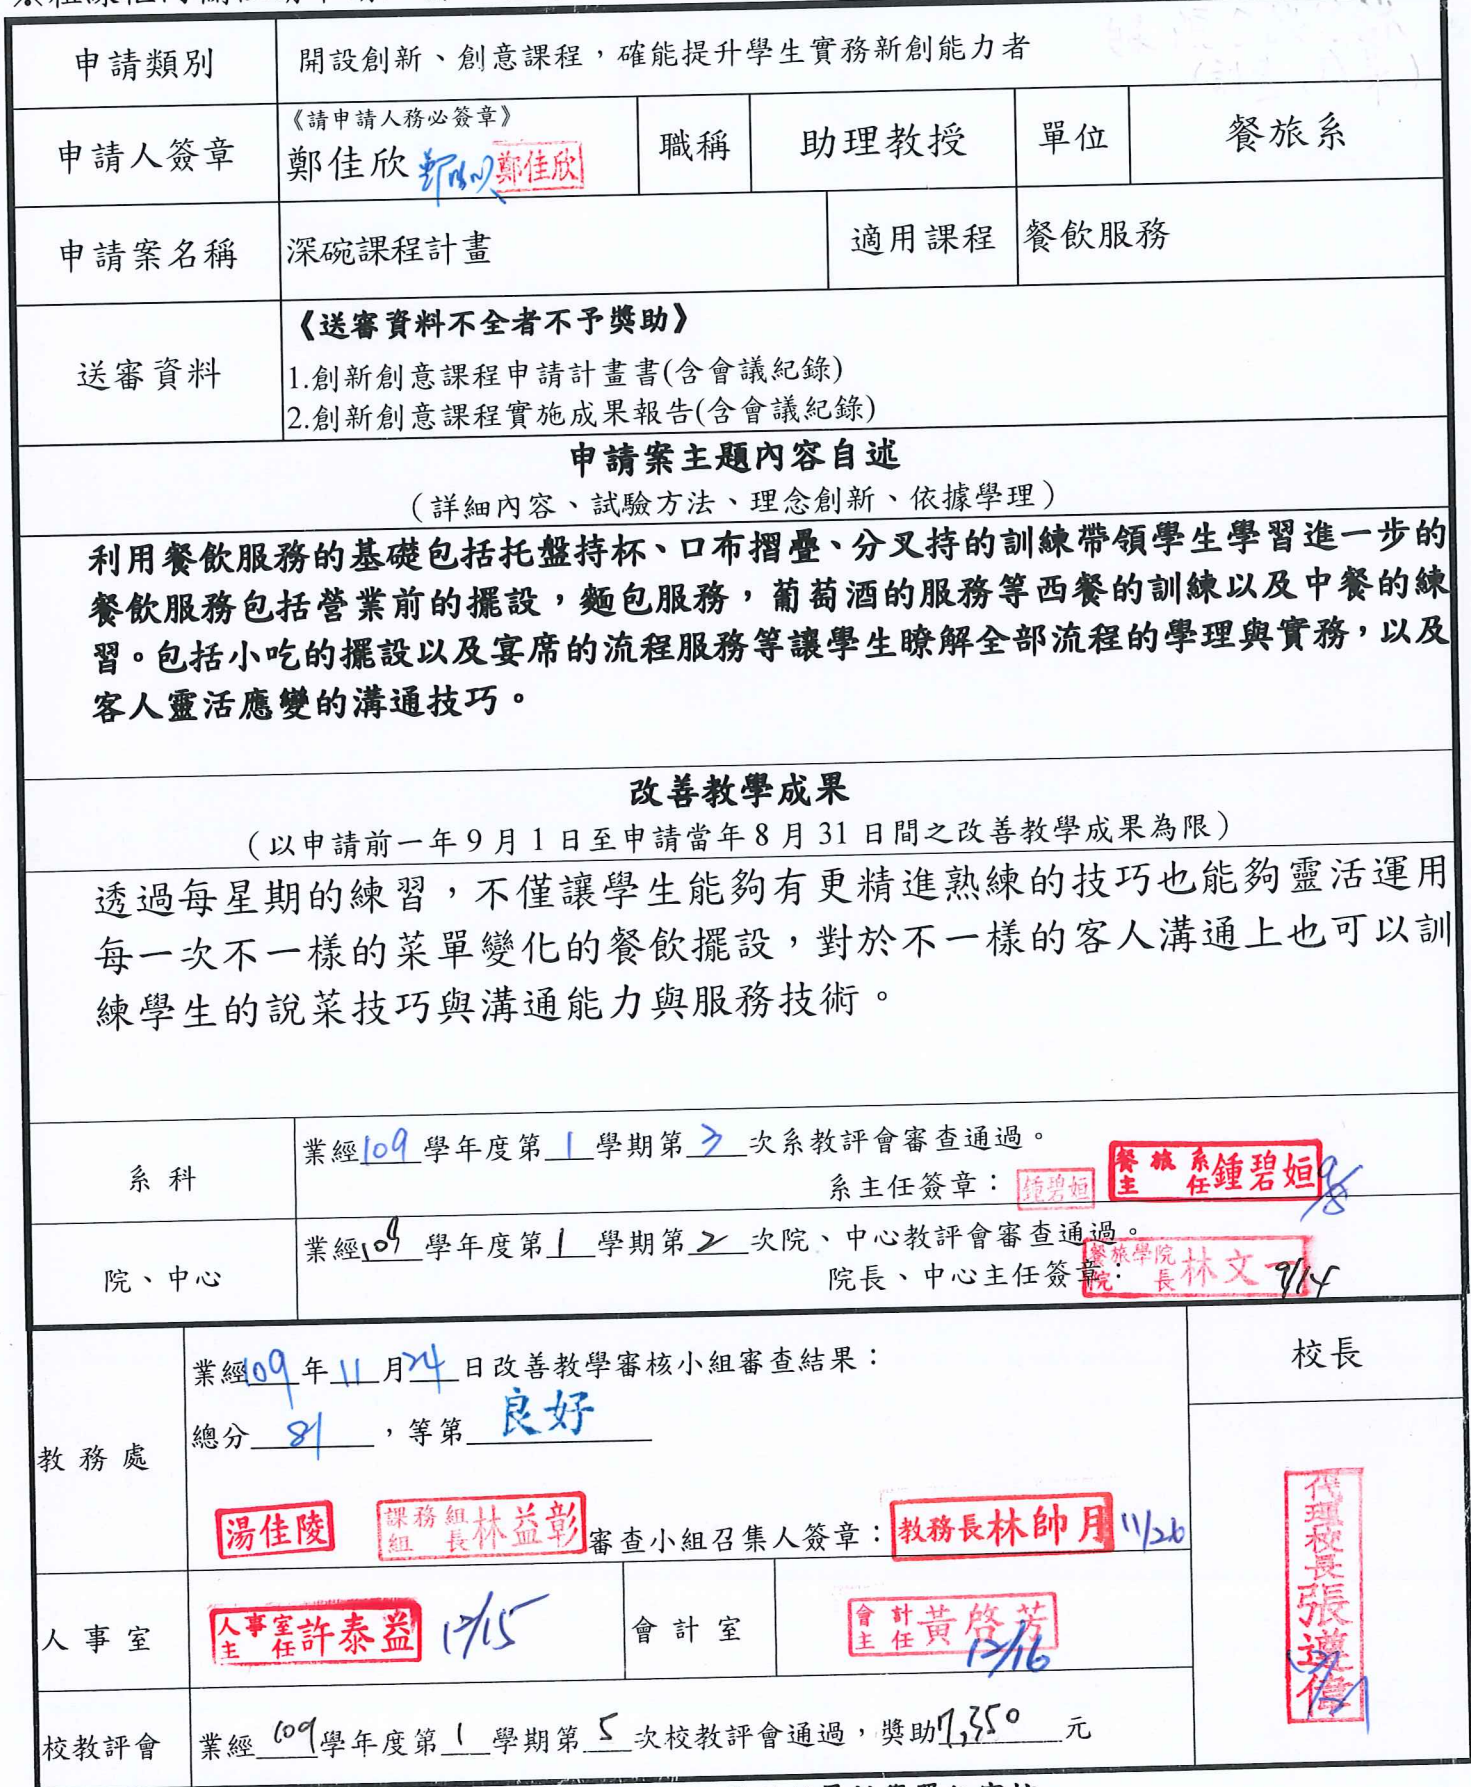 申請類別 開設創新、創意課程，確能提升學生實務新創能力者
《請申請人務必簽章》
申請人簽章 鄭佳欣 鄭佳欣 職稱 助理教授 單位 餐旅系
申請案名稱 深碗課程計畫 適用課程 餐飲服務
《送審資料不全者不予獎助》
送審資料
1.創新創意課程申請計畫書(含會議紀錄)
2.創新創意課程實施成果報告(含會議紀錄)
申請案主題內容自述
（詳細內容、試驗方法、理念創新、依據學理）
利用餐飲服務的基礎包括托盤持杯、口布摺疊、分叉持的訓練帶領學生學習進一步的
餐飲服務包括營業前的擺設，麵包服務，葡萄酒的服務等西餐的訓練以及中餐的練
習。包括小吃的擺設以及宴席的流程服務等讓學生瞭解全部流程的學理與實務，以及
客人靈活應變的溝通技巧。
改善教學成果
（以申請前一年9月1日至申請當年8月31日間之改善教學成果為限）
透過每星期的練習，不僅讓學生能夠有更精進熟練的技巧也能夠靈活運用
每一次不一樣的菜單變化的餐飲擺設，對於不一樣的客人溝通上也可以訓
練學生的說菜技巧與溝通能力與服務技術。
系科 業經109學年度第1學期第3次系教評會審查通過。
系主任簽章： 鍾碧姮 餐旅系主任鍾碧姮 9/8
院、中心 業經109學年度第1學期第2次院、中心教評會審查通過。
院長、中心主任簽章： 餐旅學院院長林文一 9/14
教務處 業經109年11月24日改善教學審核小組審查結果：
總分81，等第良好
湯佳陵 課務組組長林益彰 審查小組召集人簽章：教務長林帥月 11/26
校長
代理校長張遵偉
人事室 人事室主任許泰益 12/15 會計室 會計主任黃啓芳 12/16
校教評會 業經109學年度第1學期第5次校教評會通過，獎助7,350元